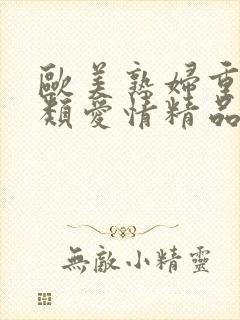 歐美熟婦重
類愛情精品
無敵小精靈